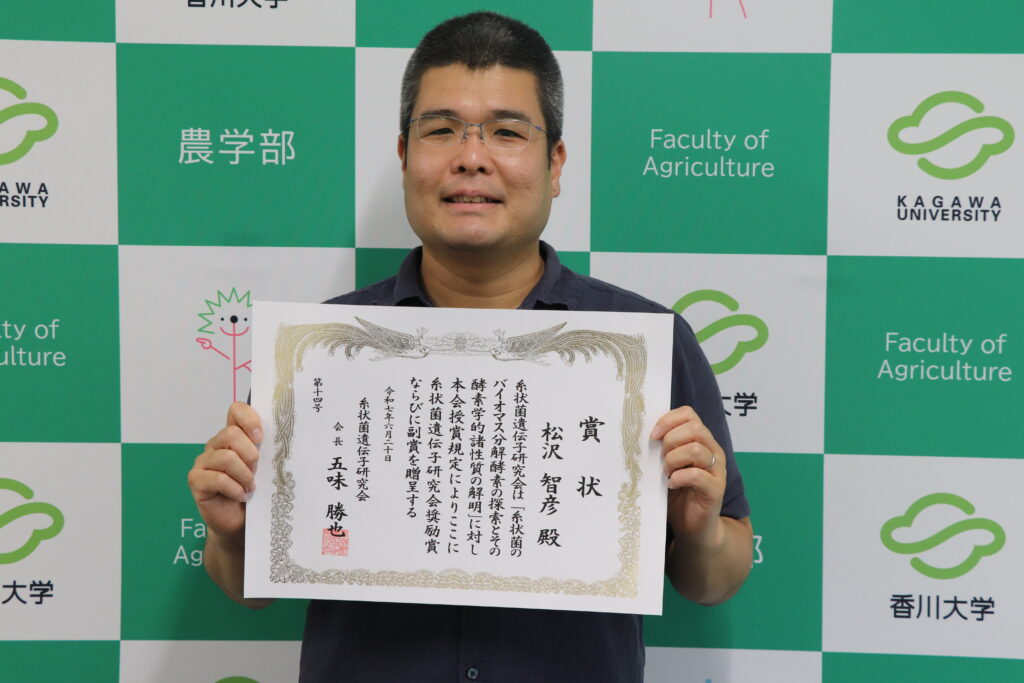 香川大学
農学部
Faculty of
Agriculture
KAGAWA
UNIVERSITY
AWA
RSITY
賞状
松沢 智彦 殿
糸状菌遺伝子研究会は「糸状菌の
バイオマス分解酵素の探索とその
酵素学的諸性質の解明」に対し
本会授賞規定によりここに
糸状菌遺伝子研究会奨励賞
ならびに副賞を贈呈する
令和七年六月二十日
糸状菌遺伝子研究会
会長 五味 勝也
第十四号
lty of
ulture
Faculty of
Agriculture
大学
Fa
Ag
部
大学
香川大学